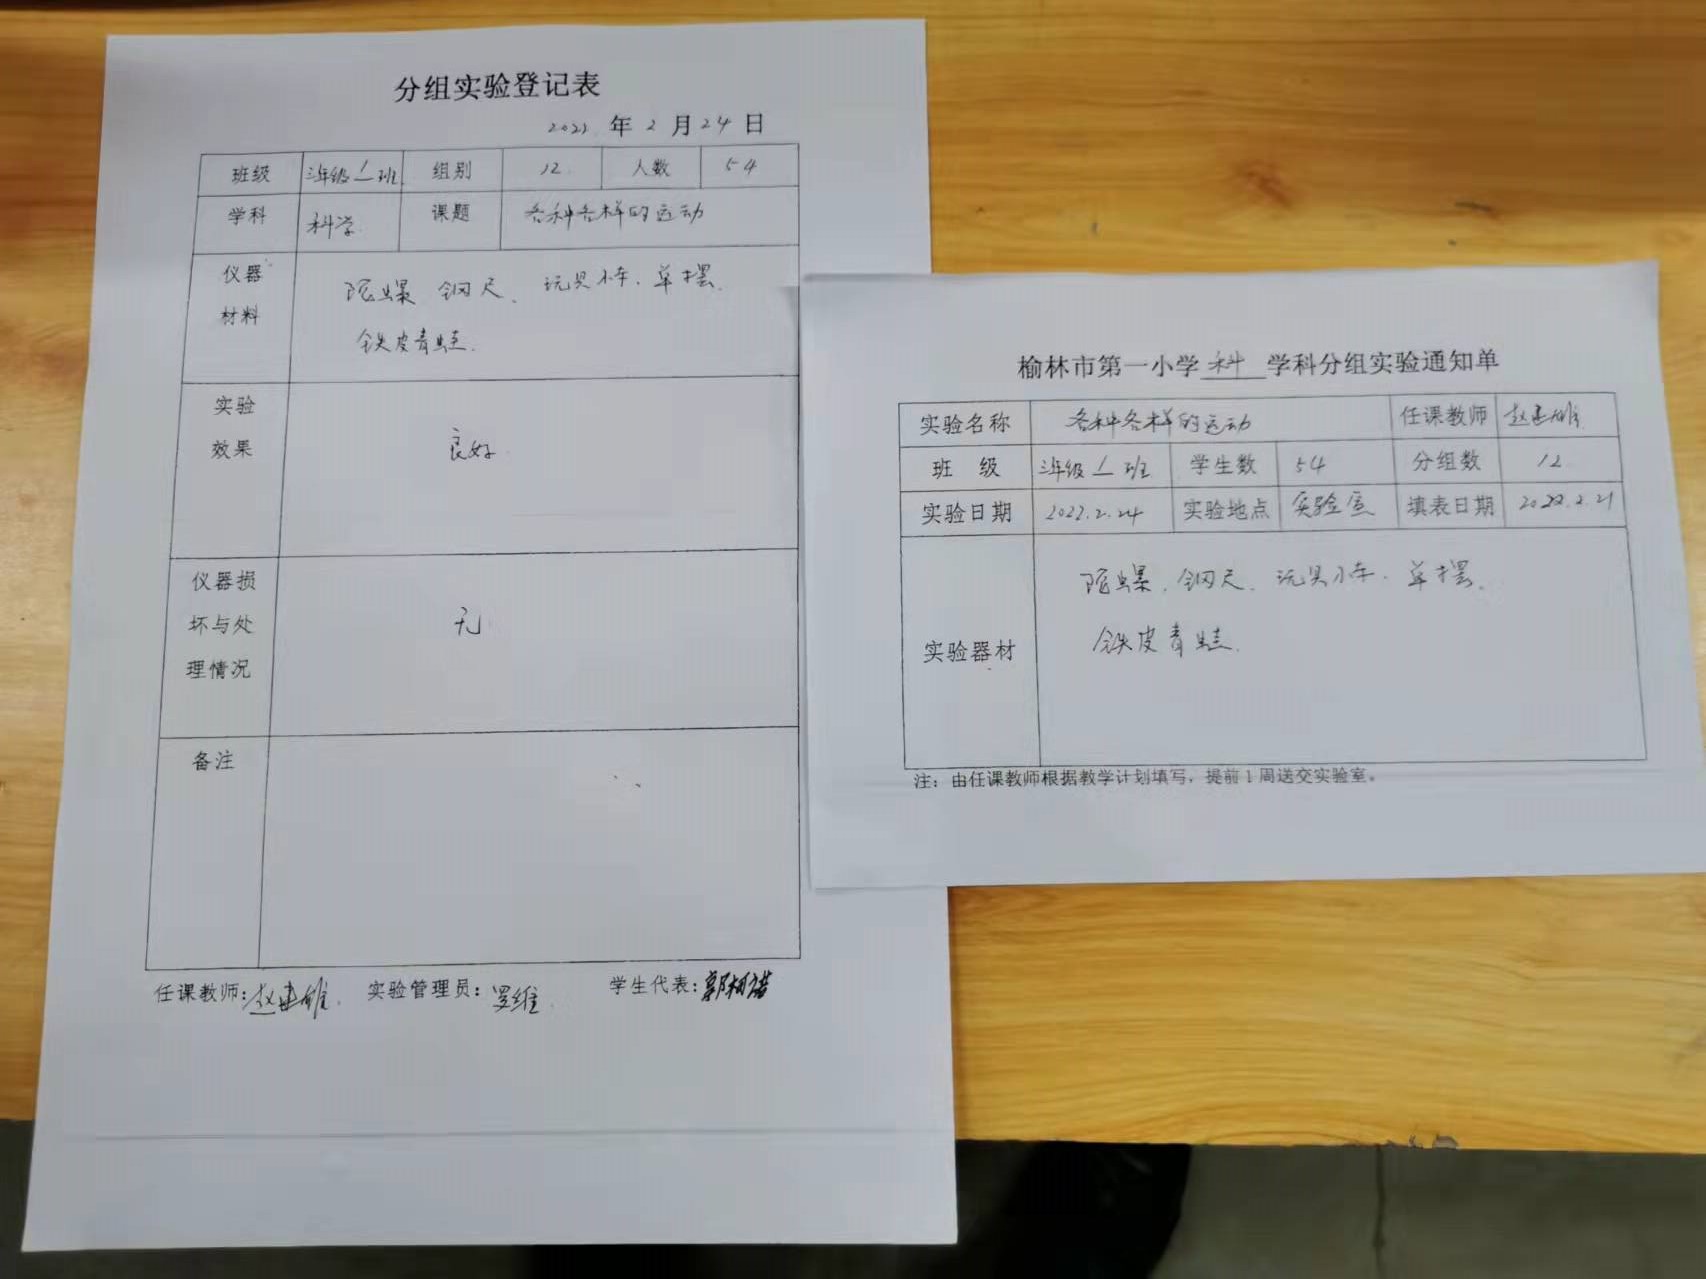 分组实验登记表
2022 年 2 月 24 日
班级 三年级 1 班 组别 12 人数 54
学科 科学 课题 各种各样的运动
仪器材料 陀螺 钢尺、玩具小车、单摆、
铁皮青蛙.
实验效果 良好
仪器损坏与处理情况 无
备注
任课教师:赵建雄 实验管理员:罗维 学生代表:
榆林市第一小学 科 学科分组实验通知单
实验名称 各种各样的运动 任课教师 赵建雄
班 级 三年级 1 班 学生数 54 分组数 12
实验日期 2022.2.24 实验地点 实验室 填表日期 2022.2.21
实验器材 陀螺、钢尺、玩具小车、单摆、
铁皮青蛙.
注：由任课教师根据教学计划填写，提前1周送交实验室。